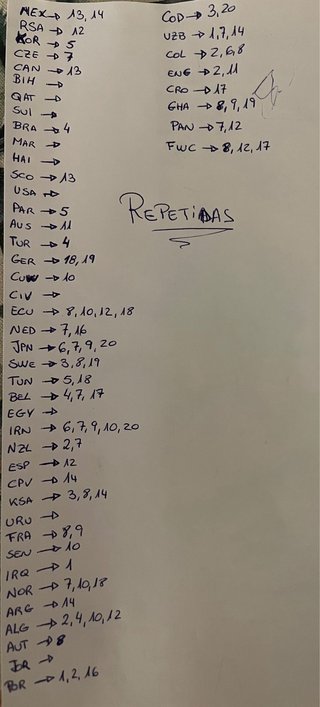 MEX → 13, 14
RSA → 12
KOR → 5
CZE → 7
CAN → 13
BIH →
QAT →
SUI →
BRA → 4
MAR →
HAI →
SCO → 13
USA →
PAR → 5
AUS → 11
TUR → 4
GER → 18, 19
CUW → 10
CIV →
ECU → 8, 10, 12, 18
NED → 7, 16
JPN → 6, 7, 9, 20
SWE → 3, 8, 19
TUN → 5, 18
BEL → 4, 7, 17
EGY →
IRN → 6, 7, 9, 10, 20
NZL → 2, 7
ESP → 12
CPV → 14
KSA → 3, 8, 14
URU →
FRA → 8, 9
SEN → 10
IRQ → 1
NOR → 7, 10, 18
ARG → 14
ALG → 2, 4, 10, 12
AUT → 8
JOR →
POR → 1, 2, 16
COD → 3, 20
UZB → 1, 7, 14
COL → 2, 6, 8
ENG → 2, 11
CRO → 17
GHA → 8, 9, 19
PAN → 7, 12
FWC → 8, 12, 17
REPETIDAS